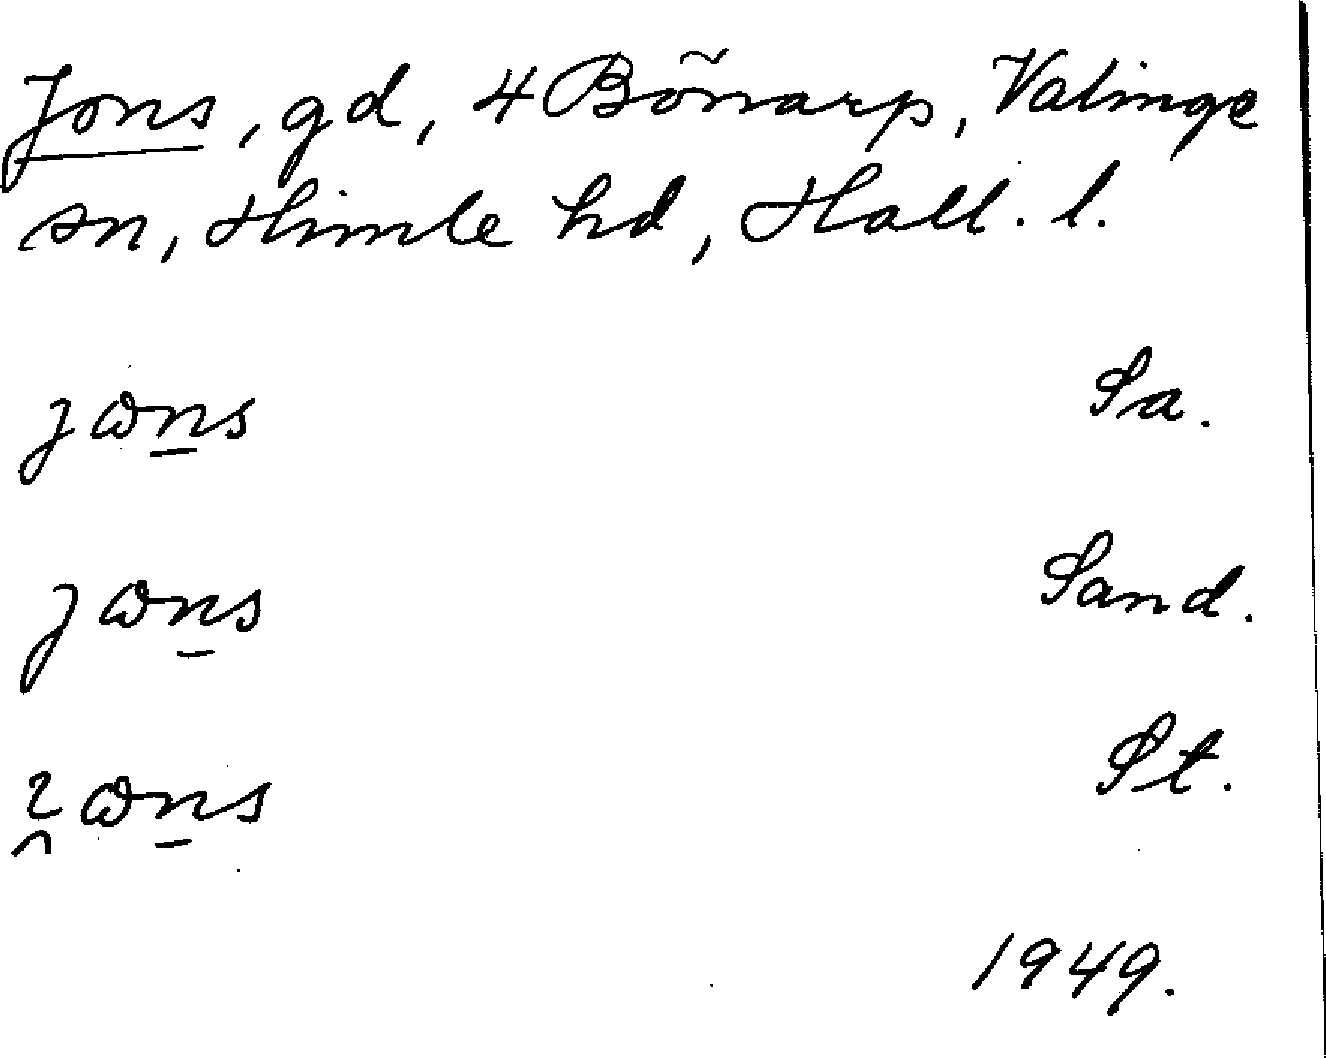 Jons, gd, 4 Bönarp, Valinge
sn, Himle hd, Hall. l.
jɷn̲s Sa.
jɷn̲s Sand.
ɷn̲s St.
1949.